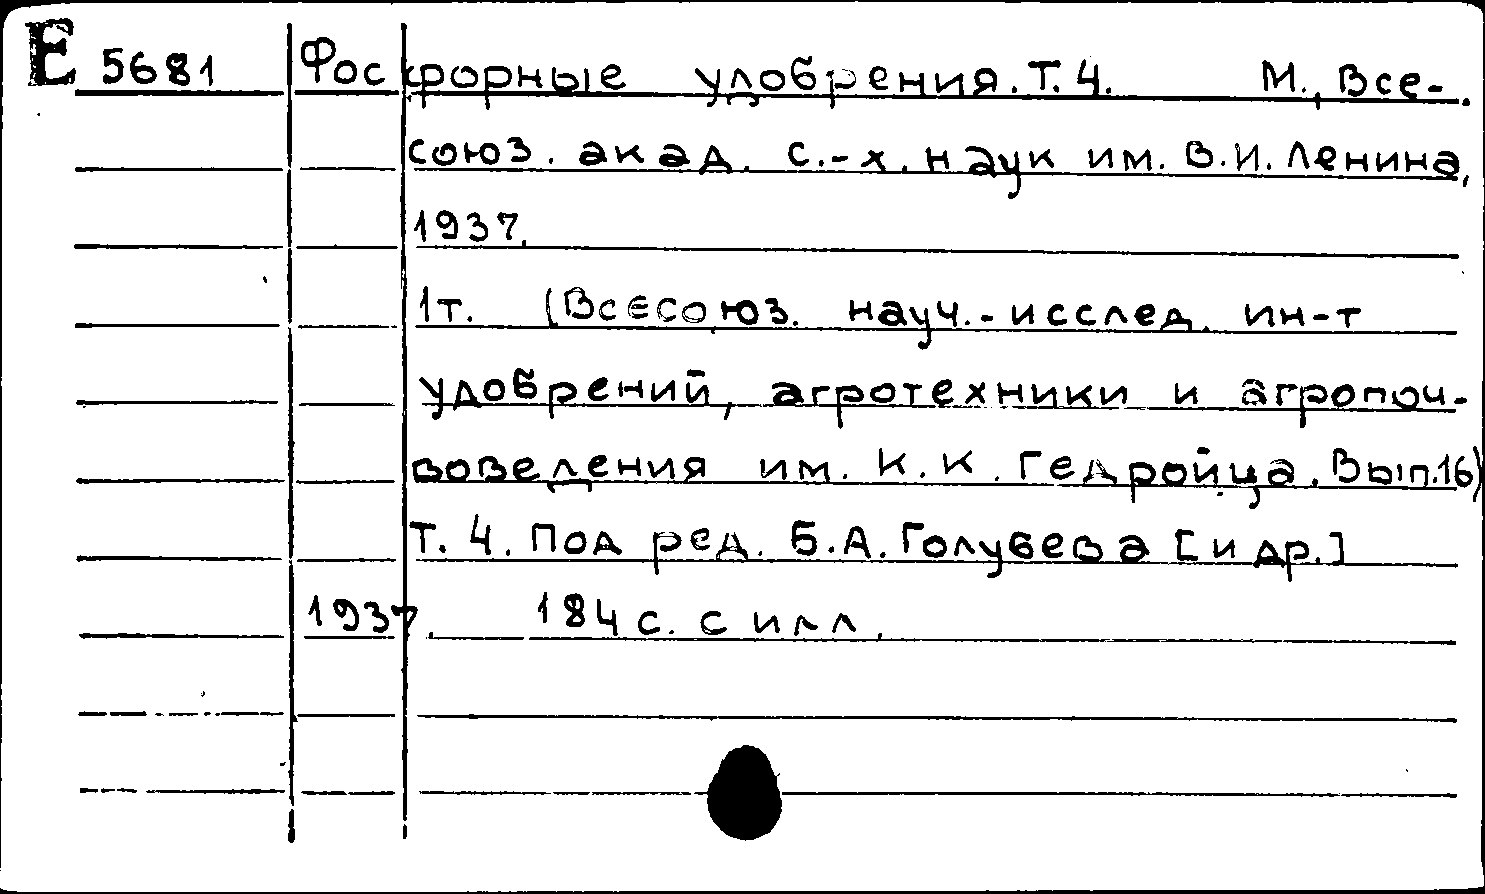 Е 5681 Фосфорные удобрения. Т. 4. М., Все-
союз. акад. с.-х. наук им. В.И. Ленина,
1937.
1 т. (Всесоюз. науч.-исслед. ин-т
удобрений, агротехники и агропоч-
воведения им. К.К. Гедройца. Вып. 16)
Т. 4. Под ред. Б.А. Голубева [и др.]
1937. 184 с. с илл.